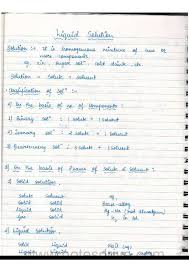 Liquid Solution
Solution :- It is homogeneous mixture of two or
more components.
ex. air, sugar solⁿ, cold drink etc.
Solution = Solute + Solvent
Classification of Solⁿ :-
1) On the basis of no of Components :-
1) Binary solⁿ :- 1 solute + 1 solvent
2) solⁿ :- 2 solute + 1 solvent
3) solⁿ :- 3 solute + 1 solvent
2) On the basis of Phases of Solute & Solvent :-
1) Solid solution :-
Solute Solvent eg.
Solid Solid Brass-alloy
Liquid Solid
Gas Solid H₂ in Pd
2) Liquid Solution,
Solid Liquid
Liquid Liquid